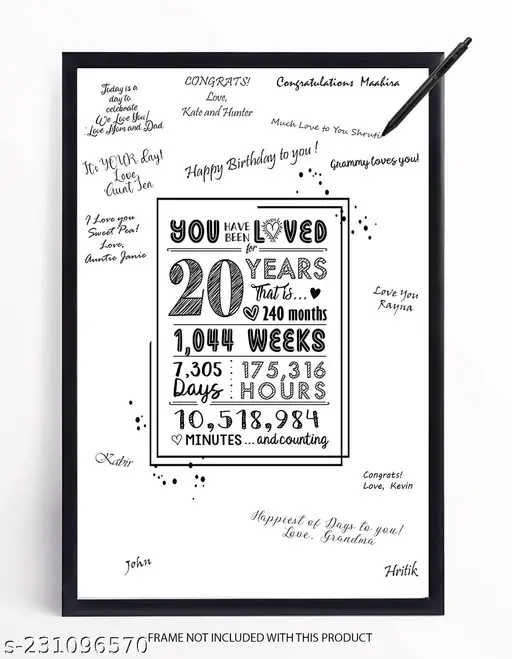 Today is a
day to
celebrate
We Love You!
Love Mom and Dad
CONGRATS!
Love,
Kate and Hunter
Congratulations Maahira
Much Love to You Shruti
It's YOUR day!
Love
Aunt Jen
Happy Birthday to you!
Grammy loves you!
I Love you
Sweet Pea!
Love,
Auntie Janie
YOU HAVE BEEN LOVED
for
20 YEARS
That is...
240 months
1,044 WEEKS
7,305 Days
175,316 HOURS
10,518,984
MINUTES... and counting
Love You
Rayna
Kabir
Congrats!
Love, Kevin
Happiest of Days to you!
Love, Grandma
John
Hritik
s-231096570
FRAME NOT INCLUDED WITH THIS PRODUCT